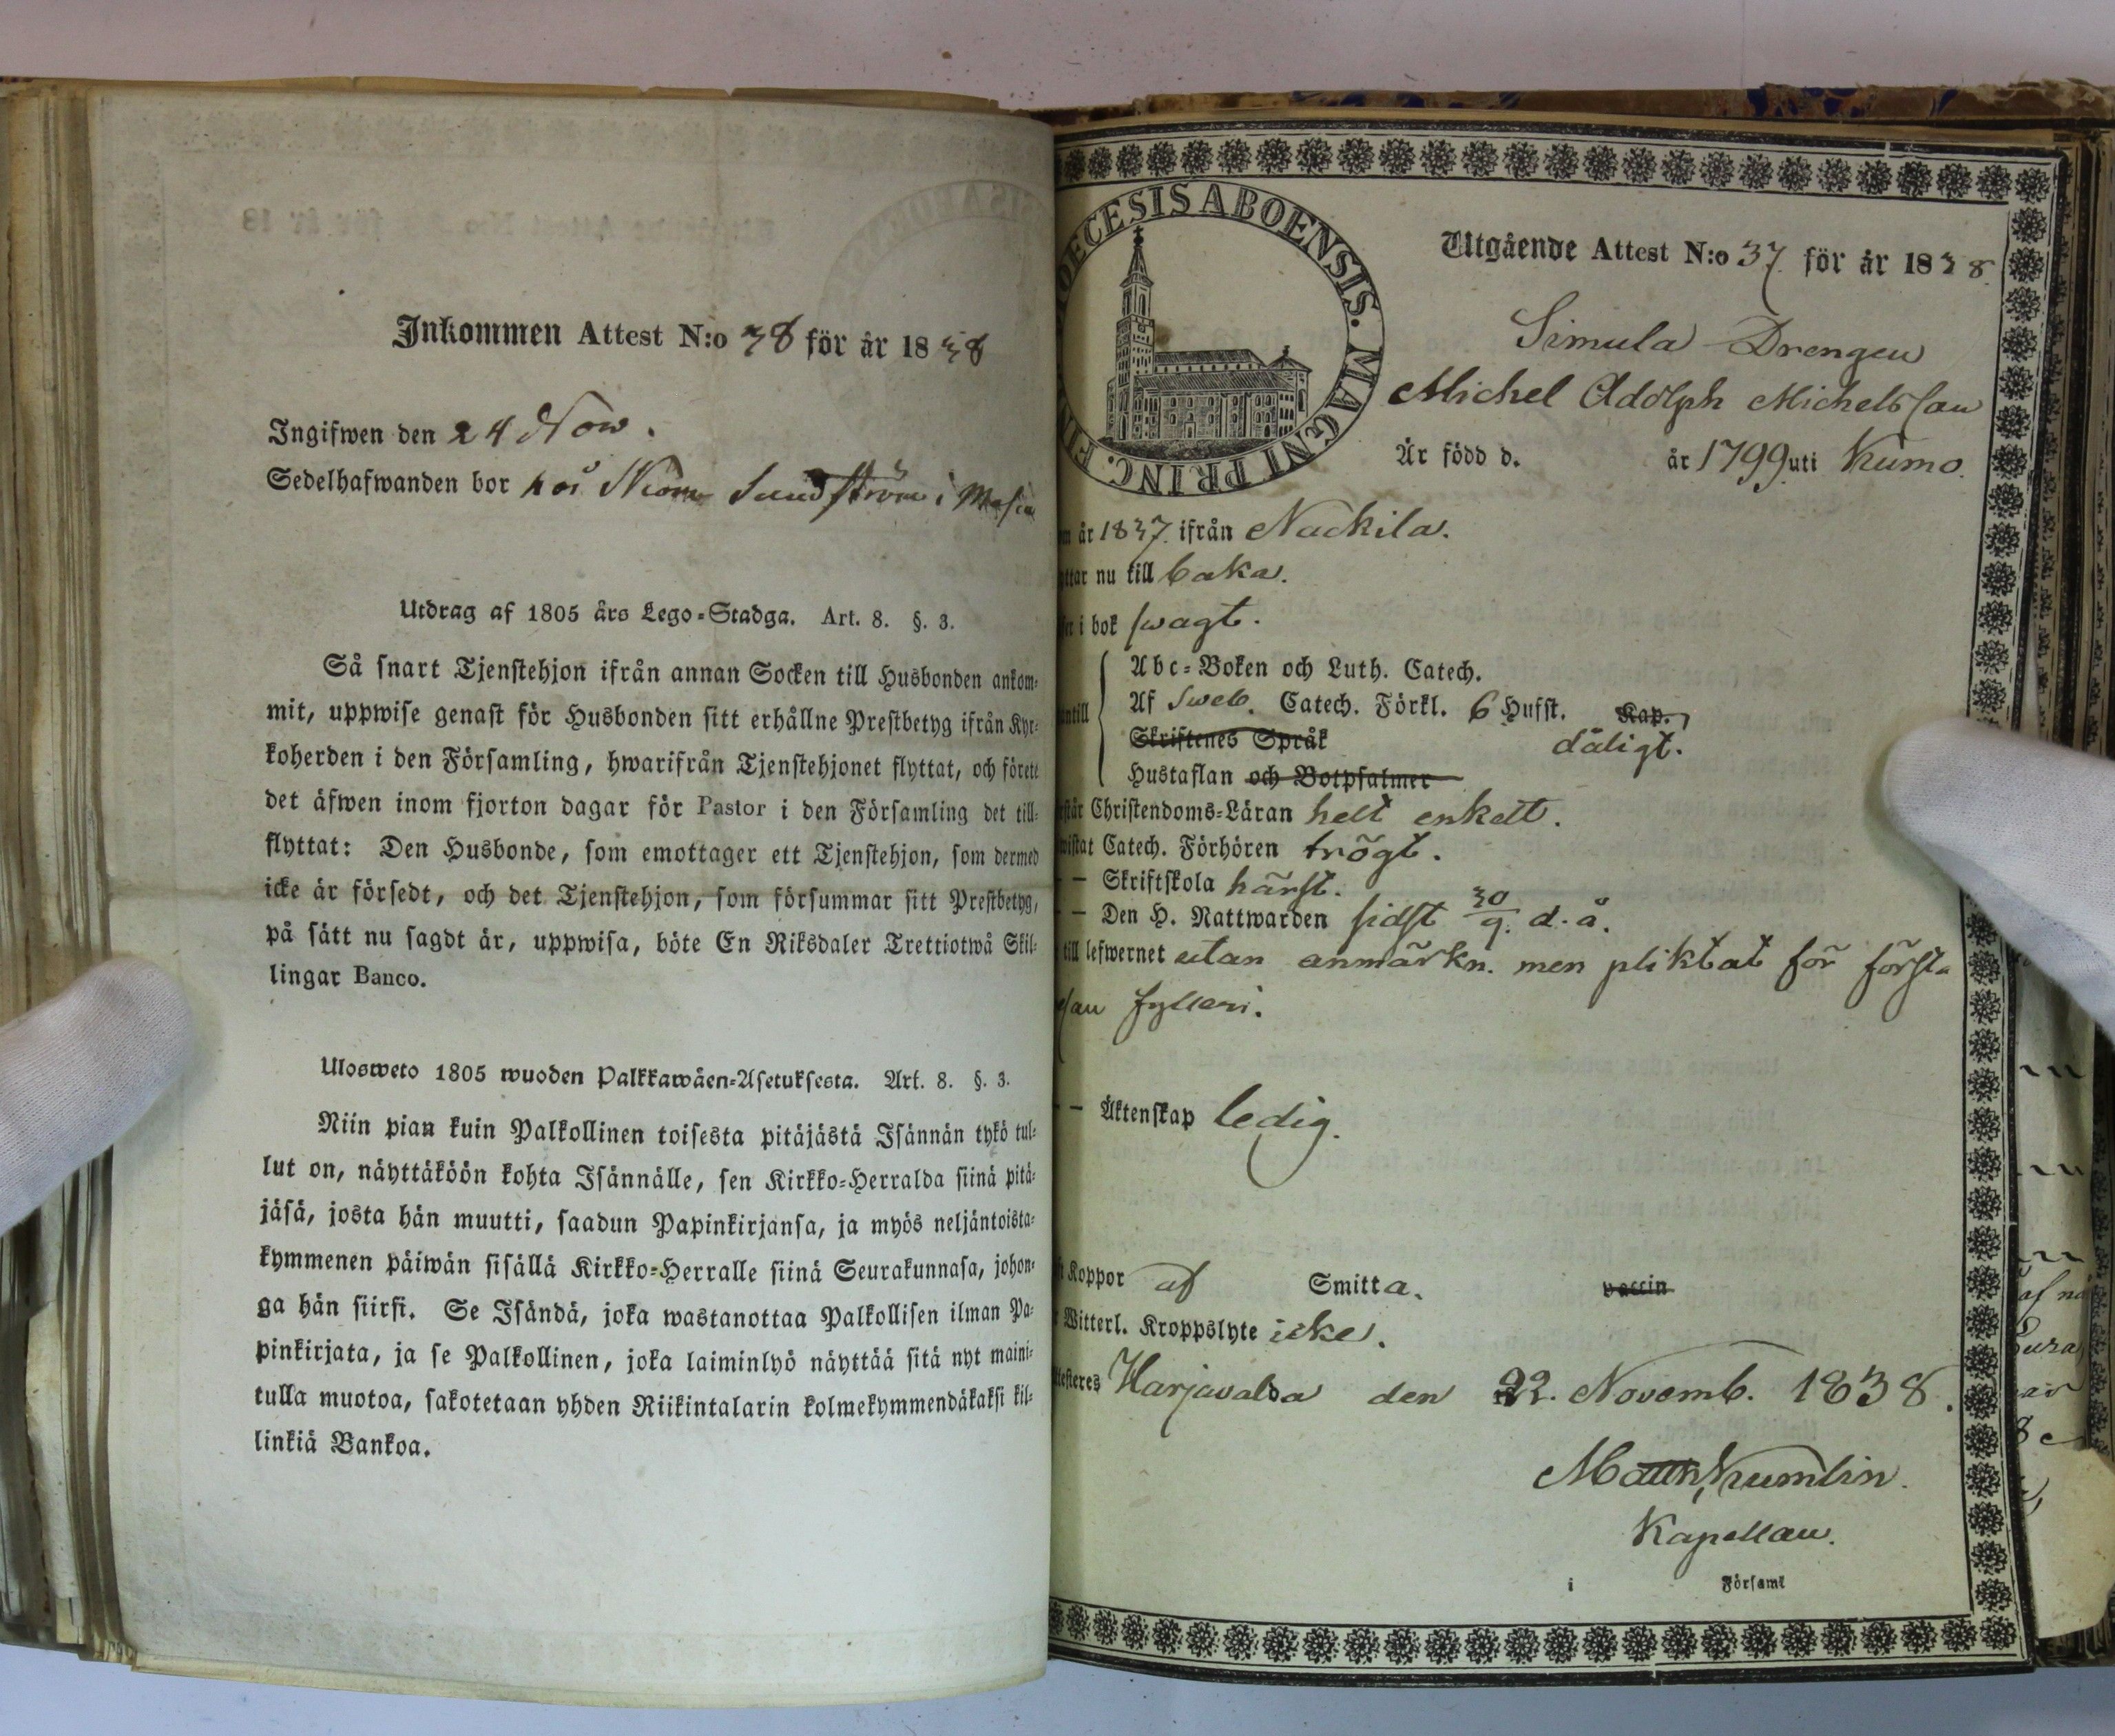 Inkommen Attest N:o 38 för år 1838
Ingifwen den 24 Now.
Sedelhafwanden bor hos Sundström i
Utdrag af 1805 års Lego-Stadga. Art. 8. §. 3.
Så snart Tjenstehjon ifrån annan Socken till Husbonden ankom-
mit, uppwise genast för Husbonden sitt erhållne Prestbetyg ifrån Kyr-
koherden i den Församling, hwarifrån Tjenstehjonet flyttat, och förete
det äfwen inom fjorton dagar för Pastor i den Församling det till-
flyttat: Den Husbonde, som emottager ett Tjenstehjon, som dermed
icke är försedt, och det Tjenstehjon, som försummar sitt Prestbetyg,
på sätt nu sagdt är, uppwisa, böte En Riksdaler Trettiotwå Skil-
lingar Banco.
Ulosweto 1805 wuoden Palkkawäen-Asetuksesta. Art. 8. §. 3.
Niin pian kuin Palkollinen toisesta pitäjästä Isännän tykö tul-
lut on, näyttäköön kohta Isännälle, sen Kirkko-Herralda siinä pitä-
jäsä, josta hän muutti, saadun Papinkirjansa, ja myös neljäntoista-
kymmenen päiwän sisällä Kirkko-Herralle siinä Seurakunnasa, johon-
ga hän siirsi. Se Isändä, joka wastanottaa Palkollisen ilman Pa-
pinkirjata, ja se Palkollinen, joka laiminlyö näyttää sitä nyt maini-
tulla muotoa, sakotetaan yhden Riikintalarin kolmekymmendäkaksi kil-
linkiä Bankoa.
DIOECESIS ABOENSIS. MAGNI PRINC. FIN
Utgående Attest N:o 37 för år 1838.
Simula Drengen
Michel Adolph Michelsson
Är född d. år 1799 uti Kumo.
år 1837. ifrån Nackila.
nu till baka.
i bok swagt.
Abc-Boken och Luth. Catech.
Af Sweb. Catech. Förkl. 6 Hufst. Kap.
Skriftenes Språk dåligt.
Hustaflan och Botpsalmer
Christendoms-Läran helt enkelt.
Catech. Förhören trögt.
— Skriftskola härst.
— Den H. Nattwarden sidst 30/9. d. å.
till lefwernet utan anmärkn. men pliktat för första
fylleri.
— Äktenskap ledig.
Koppor af Smitta. vaccin
Witterl. Kroppslyte icke.
Harjavalda den 22. Novemb. 1838.
Krumlin.
Kapellan.
i Församl